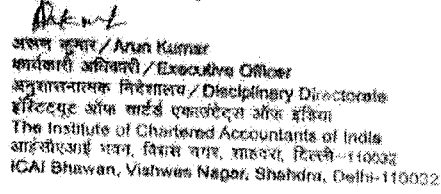 अरुण कुमार/Arun Kumar
कार्यकारी अधिकारी/Executive Officer
अनुशासनात्मक निदेशालय/Disciplinary Directorate
इंस्टिट्यूट ऑफ चार्टर्ड एकाउंटेंट्स ऑफ इंडिया
The Institute of Chartered Accountants of India
आईसीएआई भवन, विश्वास नगर, शाहदरा, दिल्ली-110032
ICAI Bhawan, Vishwas Nagar, Shahdra, Delhi-110032